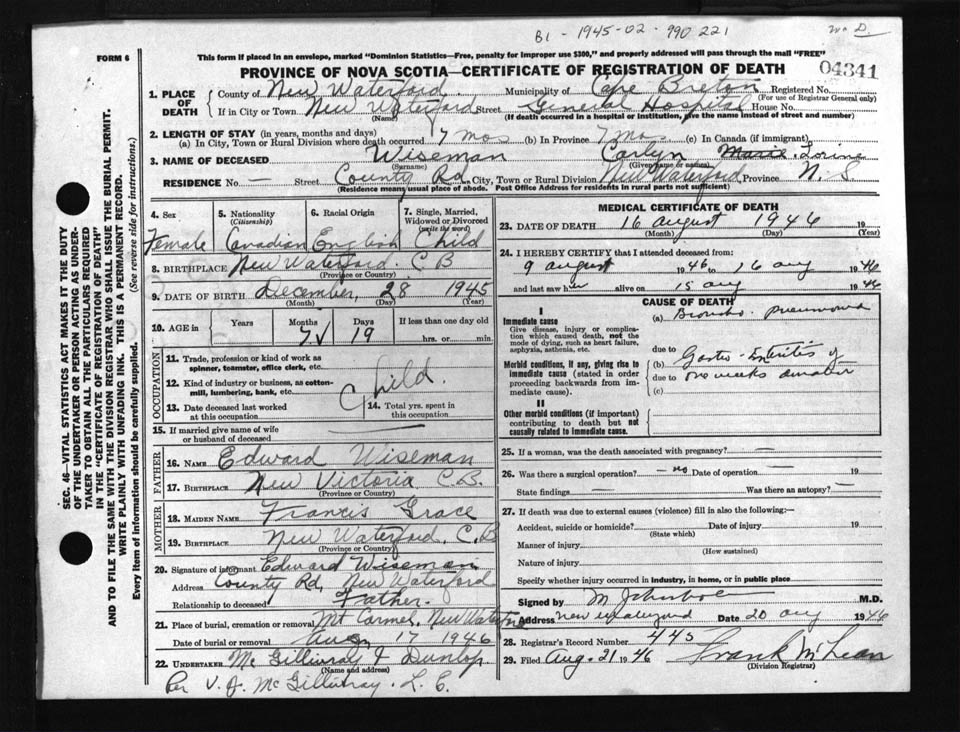 B1 - 1945-02-990221
FORM 6
This form if placed in an envelope, marked "Dominion Statistics—Free, penalty for improper use $300," and properly addressed will pass through the mail "FREE"
PROVINCE OF NOVA SCOTIA—CERTIFICATE OF REGISTRATION OF DEATH
04341
1. PLACE OF DEATH
County of New Waterford Municipality of Cape Breton Registered No.
(For use of Registrar General only)
If in City or Town New Waterford Street General Hospital House No.
(Name) (If death occurred in a hospital or institution, give its name instead of street and number)
2. LENGTH OF STAY (in years, months and days)
(a) In City, Town or Rural Division where death occurred 7 mos (b) In Province 7 mos (c) In Canada (if immigrant)
3. NAME OF DECEASED Wiseman Carlyn Marie
(Surname) (Given name or names)
RESIDENCE No. — Street County Rd City, Town or Rural Division New Waterford Province N-S
(Residence means usual place of abode. Post Office Address for residents in rural parts not sufficient)
4. Sex
Female
5. Nationality
(Citizenship)
Canadian
6. Racial Origin
English
7. Single, Married, Widowed or Divorced
(write the word)
Child
8. BIRTHPLACE New Waterford. C B
(Province or Country)
9. DATE OF BIRTH December, 28 1945
(Month) (Day) (Year)
10. AGE in
Years Months Days If less than one day old
7 19 hrs. or min
OCCUPATION
11. Trade, profession or kind of work as
spinner, teamster, office clerk, etc.
12. Kind of industry or business, as cotton-
mill, lumbering, bank, etc.
Child.
13. Date deceased last worked
at this occupation
14. Total yrs. spent in
this occupation
15. If married give name of wife
or husband of deceased —
FATHER
16. NAME Edward Wiseman
17. BIRTHPLACE New Victoria C.B.
(Province or Country)
MOTHER
18. MAIDEN NAME Francis Grace
19. BIRTHPLACE New Waterford, C.B
(Province or Country)
20. Signature of informant Edward Wiseman
Address County Rd, New Waterford
Relationship to deceased Father.
21. Place of burial, cremation or removal Mt Carmel, New Waterford
Date of burial or removal Aug 17 1946
22. UNDERTAKER Mc Gillivray & Dunlop
(Name and address)
Per V. J. McGillivray. L. E.
MEDICAL CERTIFICATE OF DEATH
23. DATE OF DEATH 16 August 1946 19
(Month) (Day) (Year)
24. I HEREBY CERTIFY that I attended deceased from:
9 august 1946 to 16 aug 1946
and last saw her alive on 15 aug 1946
CAUSE OF DEATH
I
Immediate cause
Give disease, injury or complica-
tion which caused death, not the
mode of dying, such as heart failure,
asphyxia, asthenia, etc.
(a) Broncho. pneumonia
due to
Morbid conditions, if any, giving rise to
immediate cause (stated in order
proceeding backwards from im-
mediate cause).
(b) Gastro-Enteritis of
due to two weeks duration
(c)
II
Other morbid conditions (if important)
contributing to death but not
causally related to immediate cause.
25. If a woman, was the death associated with pregnancy? —
26. Was there a surgical operation? — no Date of operation — 19
State findings — Was there an autopsy? —
27. If death was due to external causes (violence) fill in also the following:—
Accident, suicide or homicide? Date of injury 19
(State which)
Manner of injury
(How sustained)
Nature of injury
Specify whether injury occurred in industry, in home, or in public place
Signed by M.D.
Address New Waterford Date 20 aug 1946
28. Registrar's Record Number 445
29. Filed Aug. 21 1946 Frank McLean
(Division Registrar)
SEC. 46—VITAL STATISTICS ACT MAKES IT THE DUTY
OF THE UNDERTAKER OR PERSON ACTING AS UNDER-
TAKER TO OBTAIN ALL THE PARTICULARS REQUIRED
IN THE "CERTIFICATE OF REGISTRATION OF DEATH"
AND TO FILE THE SAME WITH THE DIVISION REGISTRAR WHO SHALL ISSUE THE BURIAL PERMIT.
WRITE PLAINLY WITH UNFADING INK. THIS IS A PERMANENT RECORD.
Every item of information should be carefully supplied. (See reverse side for instructions.)